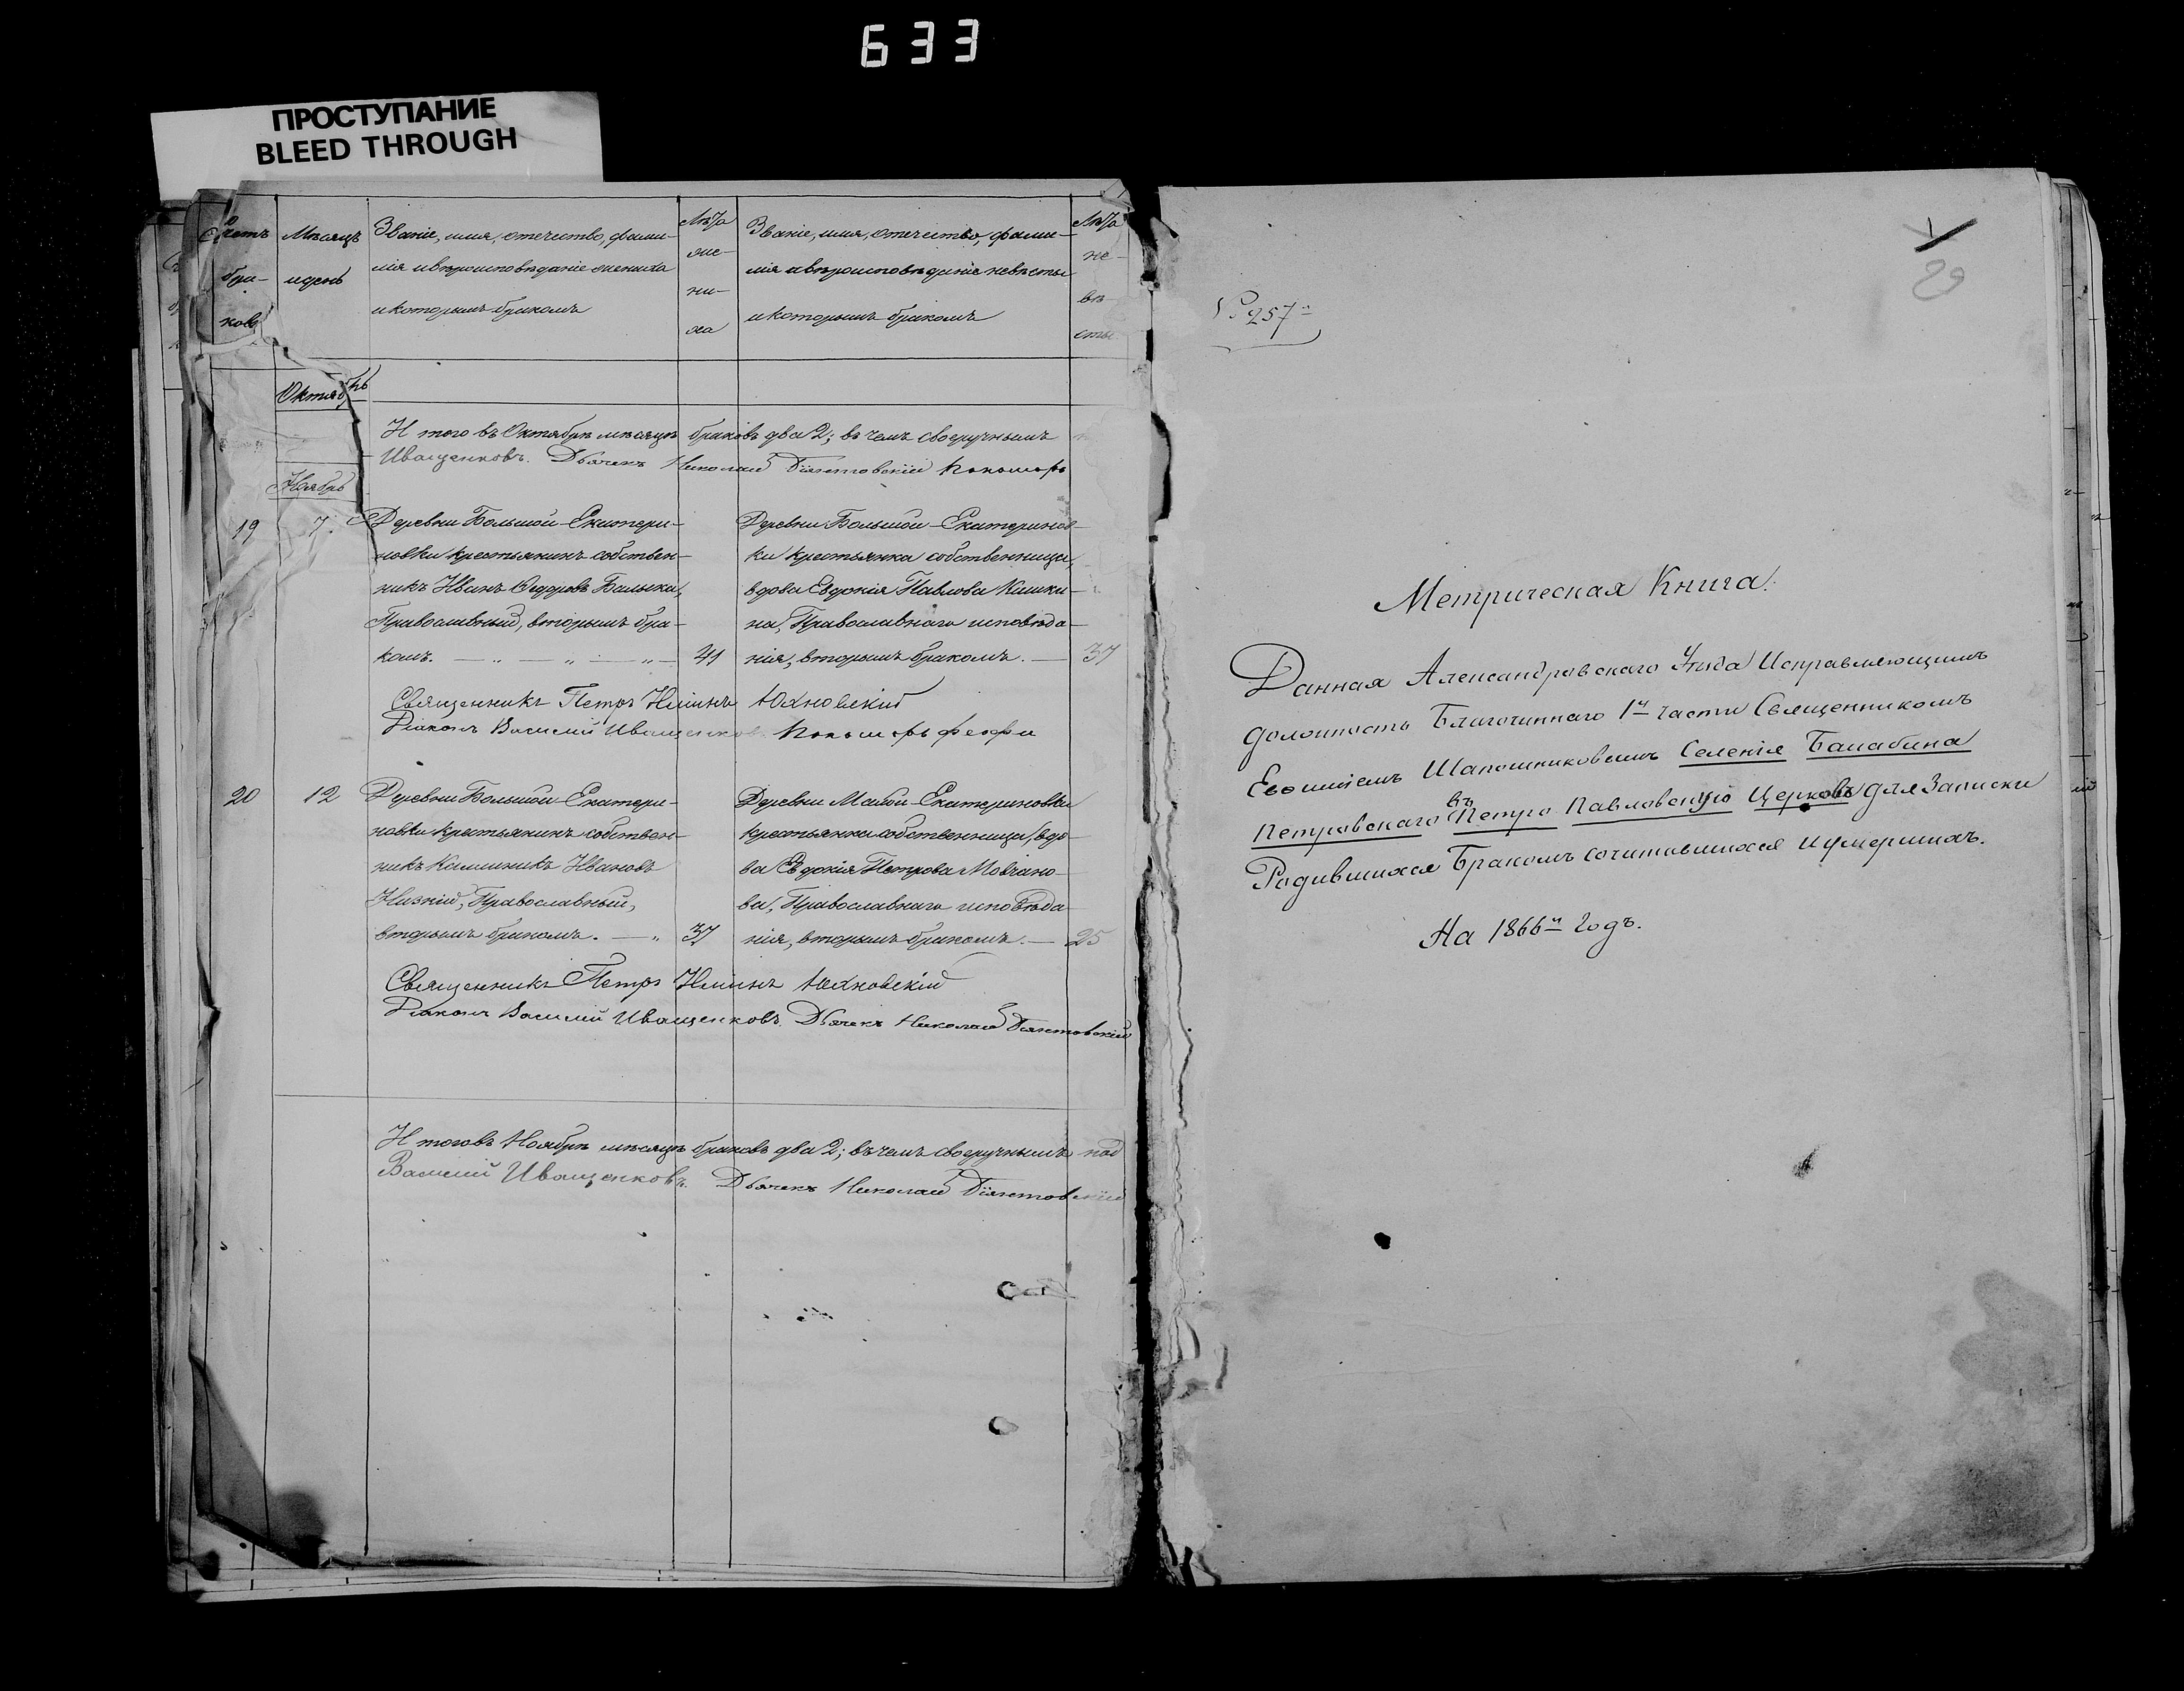 633
ПРОСТУПАНИЕ
BLEED THROUGH
Счетъ бра-ковъ
Мѣсяцъ и день
Званіе, имя, отечество, фами-
лія и вѣроисповѣданіе жениха
и которымъ бракомъ
Лѣта же-ни-ха
Званіе, имя, отечество, фами-
лія и вѣроисповѣданіе невѣсты
и которымъ бракомъ
Лѣта не-вѣ-сты
Октябрь
И того въ Октябрѣ мѣсяцѣ браковъ два 2; въ чемъ своеручнымъ
Иващенковъ. Дьячекъ Николай Пономарь
Ноябрь
19
7.
Деревни Большой-Екатери-
новки крестьянинъ собствен-
никъ Иванъ Ѳедоровъ Балыка,
Православный, вторымъ бра-
комъ.
41
Деревни Большой-Екатеринов-
ки крестьянка собственница,
вдова Евдокія Павлова Кишки-
на, Православнаго исповѣда-
нія, вторымъ бракомъ.
37
Священникъ Петръ Юхновскій
Діаконъ Василій Иващенковъ. Пономарь
20
12
Деревни Большой-Екатери-
новки крестьянинъ собствен-
никъ Каллиникъ Ивановъ
Низкій, Православный,
вторымъ бракомъ.
37
Деревни Малой-Екатериновки
крестьянка собственница, вдо-
ва Евдокія Петрова Мовчано-
ва, Православнаго исповѣда-
нія, вторымъ бракомъ.
25
Священникъ Петръ Юхновскій
Діаконъ Василій Иващенковъ. Дьячекъ Николай
И того въ Ноябрѣ мѣсяцѣ браковъ два 2; въ чемъ своеручнымъ под
Василій Иващенковъ. Дьячекъ Николай
1
29
257
Метрическая Книга.
Данная Александровскаго Уѣзда Исправляющимъ
должность Благочиннаго 1й части Священникомъ
Евѳиміемъ Шапошниковымъ Селенія Балабина
Петровскаго въ Петро Павловскую Церковь для Записки
Родившихся Бракомъ сочитавшихся и умершихъ.
На 1866й Годъ.